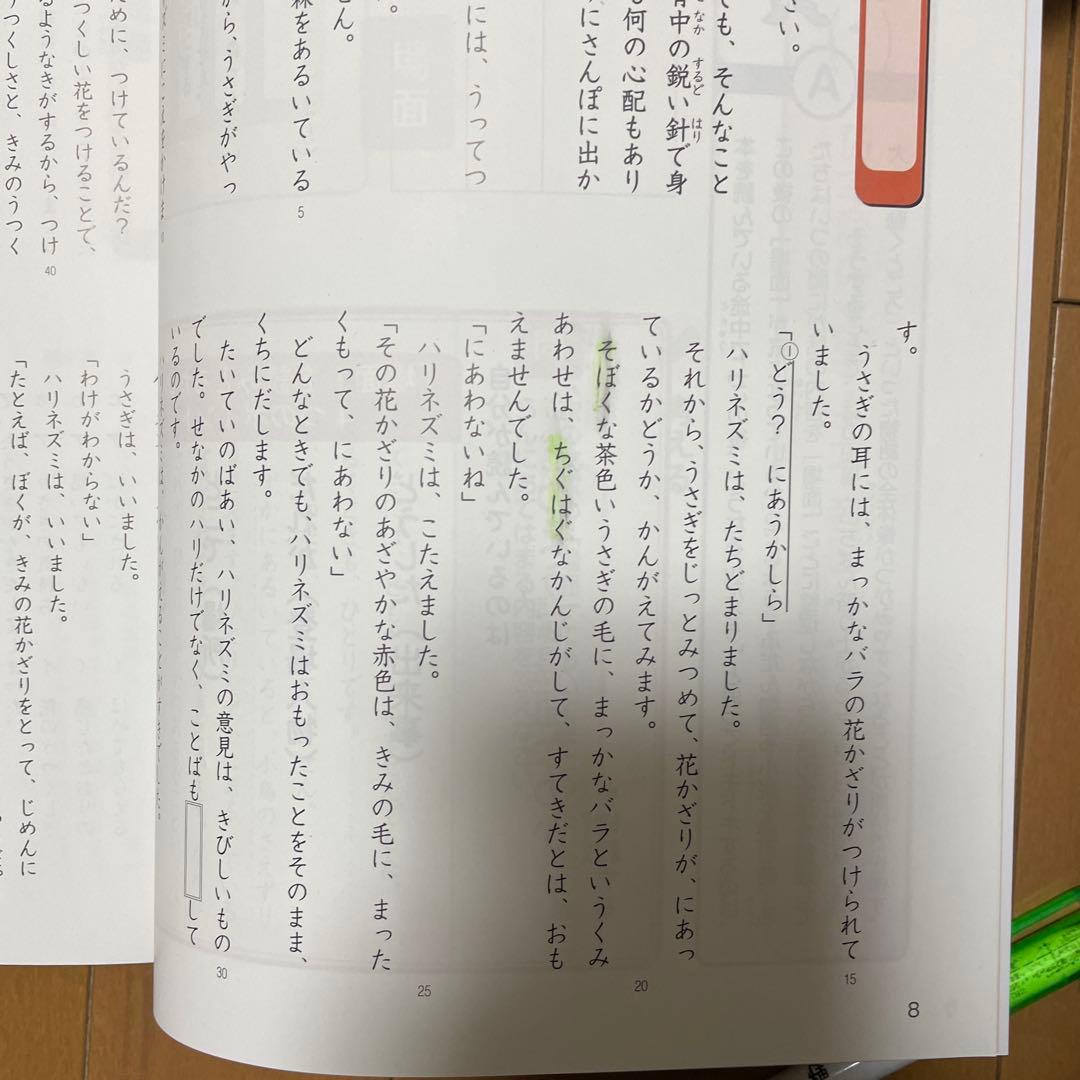 さい。
ても、そんなこと
背中の鋭い針で身
なか
するど
はり
も何の心配もあり
にさんぽに出か
には、うってつ
せん。
森をあるいている
5
から、うさぎがやっ
す。
うさぎの耳には、まっかなバラの花かざりがつけられて
15
いました。
「①どう？ にあうかしら」
ハリネズミは、たちどまりました。
それから、うさぎをじっとみつめて、花かざりが、にあっ
ているかどうか、かんがえてみます。
20
そぼくな茶色いうさぎの毛に、まっかなバラというくみ
あわせは、ちぐはぐなかんじがして、すてきだとは、おも
えませんでした。
「にあわないね」
ハリネズミは、こたえました。
25
「その花かざりのあざやかな赤色は、きみの毛に、まった
くもって、にあわない」
どんなときでも、ハリネズミはおもったことをそのまま、
くちにだします。
たいていのばあい、ハリネズミの意見は、きびしいもの
30
でした。せなかのハリだけでなく、ことばも
して
いるのです。
8
ために、つけているんだ？
つくしい花をつけることで、
るようなきがするから、つけ
40
つくしさと、きみのうつく
うさぎは、いいました。
「わけがわからない」
ハリネズミは、いいました。
「たとえば、ぼくが、きみの花かざりをとって、じめんに